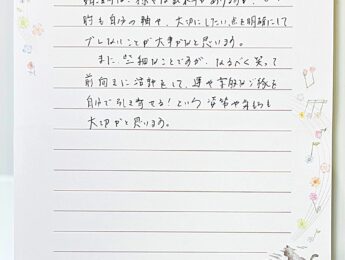 時も自分の軸や、大切にしたい点を明確にして
ブレないことが大事だなと思います。
また、些細なことですが、なるべく笑って
前向きに活動をして、運や素敵なご縁を
自分で引き寄せる!という姿勢や気持ちも
大切かと思います。